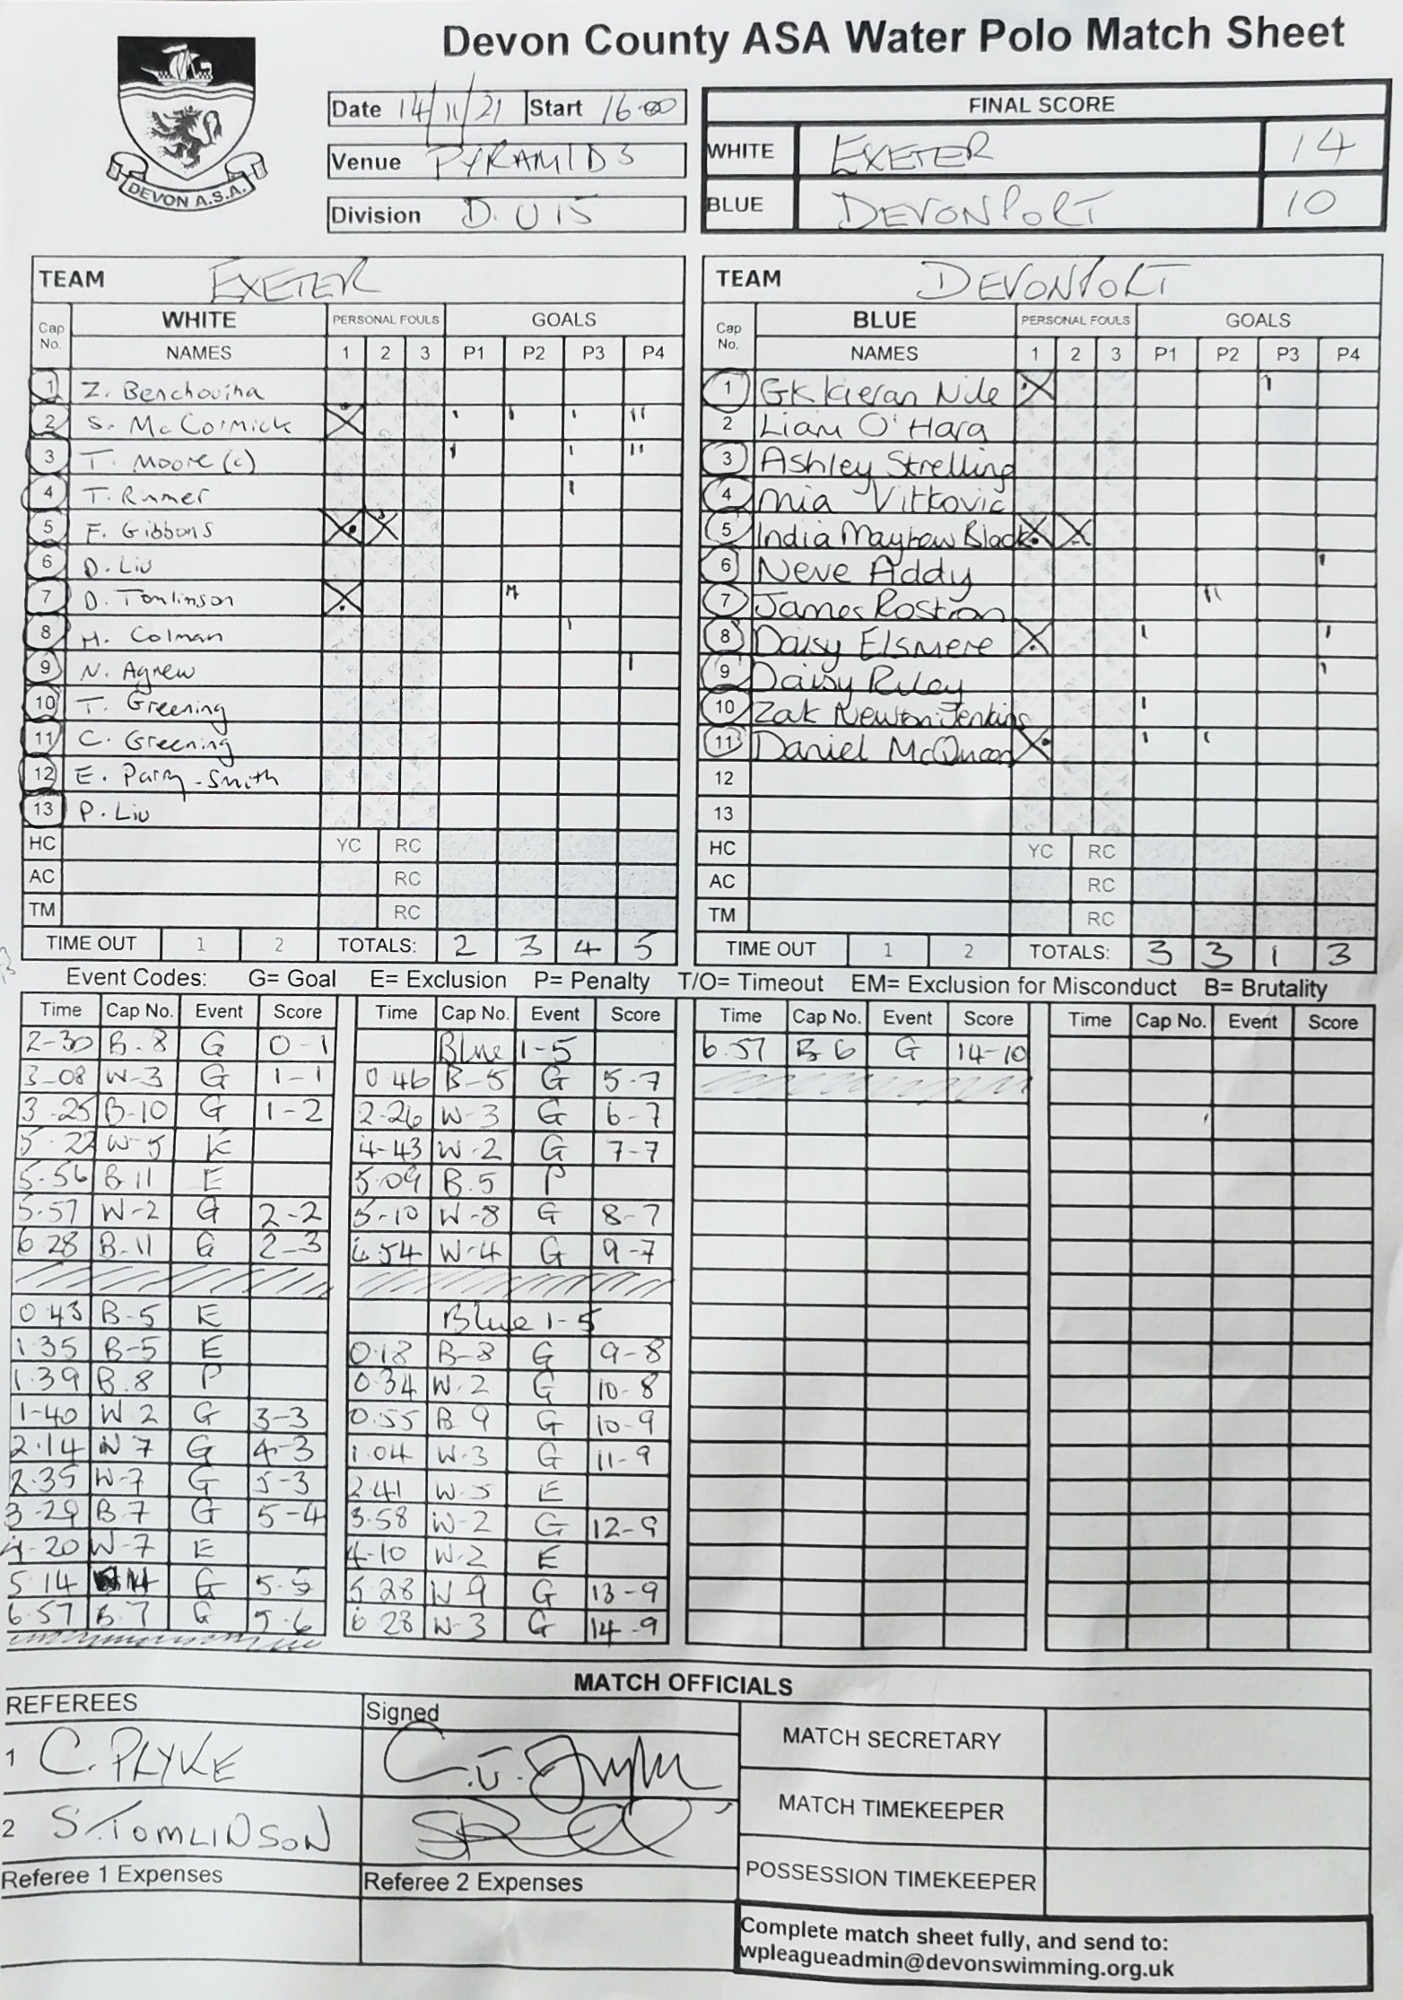 Devon County ASA Water Polo Match Sheet
DEVON A.S.A.
Date 14/11/21 Start 16-00
Venue PYRAMIDS
Division D. U15
FINAL SCORE
WHITE EXETER 14
BLUE DEVONPORT 10
TEAM EXETER
Cap No. WHITE PERSONAL FOULS GOALS
NAMES 1 2 3 P1 P2 P3 P4
1 Z. Benchouiha
2 S. McCormick X ' ' ' "
3 T. Moore (c) ' ' "
4 T. Rimmer '
5 F. Gibbons X X
6 D. Liu
7 D. Tomlinson X "
8 H. Colman '
9 N. Agnew '
10 T. Greening
11 C. Greening
12 E. Parry-Smith
13 P. Liu
HC YC RC
AC RC
TM RC
TIME OUT 1 2 TOTALS: 2 3 4 5
TEAM DEVONPORT
Cap No. BLUE PERSONAL FOULS GOALS
NAMES 1 2 3 P1 P2 P3 P4
1 GK Kieran Nile X '
2 Liam O'Hara
3 Ashley Strelling
4 Mia Vitkovic
5 India Mayhew Black X X
6 Neve Addy '
7 James Rostron "
8 Daisy Elsmere X ' '
9 Daisy Riley '
10 Zak Newton-Jenkins '
11 Daniel McQueen X ' '
12
13
HC YC RC
AC RC
TM RC
TIME OUT 1 2 TOTALS: 3 3 1 3
Event Codes: G= Goal E= Exclusion P= Penalty T/O= Timeout EM= Exclusion for Misconduct B= Brutality
Time Cap No. Event Score
2-30 B-8 G 0-1
3-08 W-3 G 1-1
3-25 B-10 G 1-2
5-22 W-5 E
5.56 B 11 E
5.57 W-2 G 2-2
6.28 B-11 G 2-3
0.43 B-5 E
1.35 B-5 E
1.39 B.8 P
1-40 W 2 G 3-3
2.14 W 7 G 4-3
2.35 W-7 G 5-3
3-29 B-7 G 5-4
4-20 W-7 E
5 14 G 5-5
6.57 B.7 G 5-6
Time Cap No. Event Score
Blue 1-5
0.46 B-5 G 5-7
2-26 W-3 G 6-7
4-43 W-2 G 7-7
5.09 B.5 P
5-10 W-8 G 8-7
6.54 W-4 G 9-7
Blue 1-5
0.18 B-8 G 9-8
0.34 W-2 G 10-8
0.55 B 9 G 10-9
1.04 W-3 G 11-9
2.41 W-5 E
3.58 W-2 G 12-9
4-10 W-2 E
5.28 W 9 G 13-9
6 28 W-3 G 14-9
Time Cap No. Event Score
6.57 B 6 G 14-10
Time Cap No. Event Score
MATCH OFFICIALS
REFEREES Signed
1 C. PRYKE
2 S. TOMLINSON
Referee 1 Expenses Referee 2 Expenses
MATCH SECRETARY
MATCH TIMEKEEPER
POSSESSION TIMEKEEPER
Complete match sheet fully, and send to:
wpleagueadmin@devonswimming.org.uk